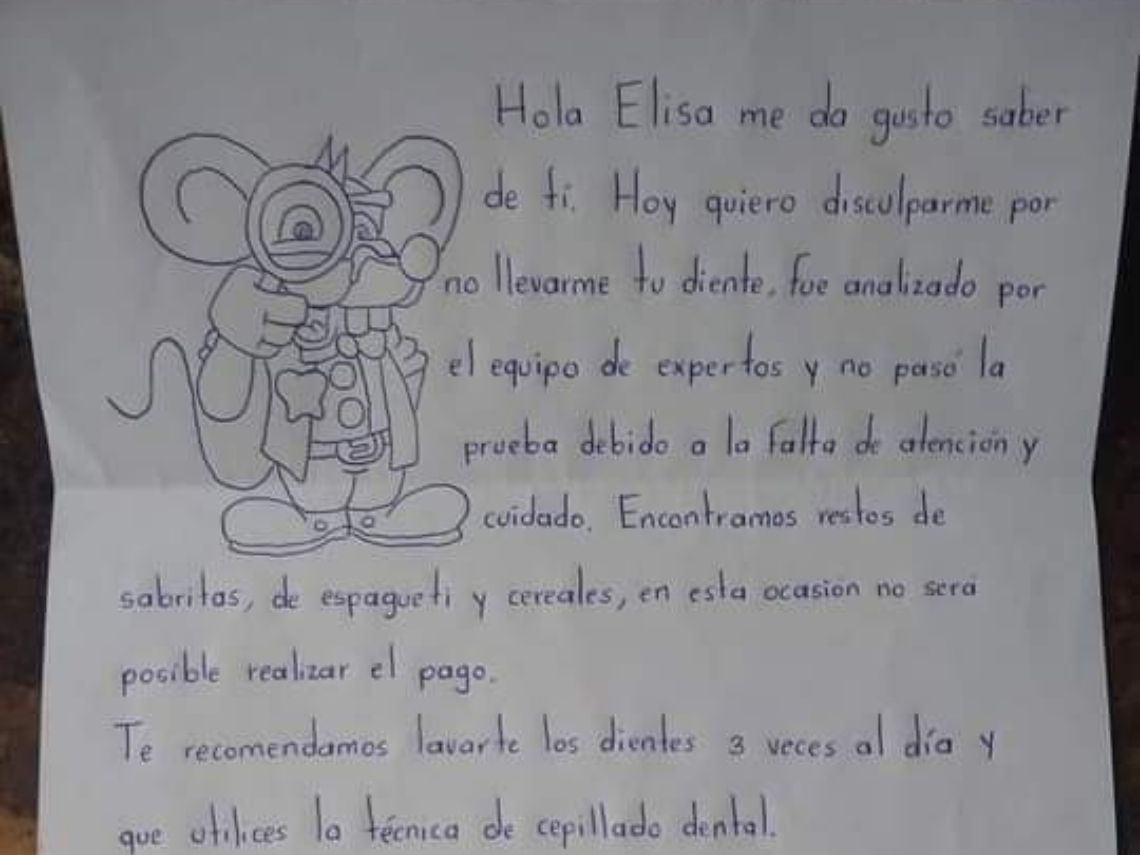 Hola Elisa me da gusto saber
de ti. Hoy quiero disculparme por
no llevarme tu diente, fue analizado por
el equipo de expertos y no pasó la
prueba debido a la falta de atención y
cuidado. Encontramos restos de
sabritas, de espagueti y cereales, en esta ocasion no será
posible realizar el pago.
Te recomendamos lavarte los dientes 3 veces al día y
que utilices la técnica de cepillado dental.